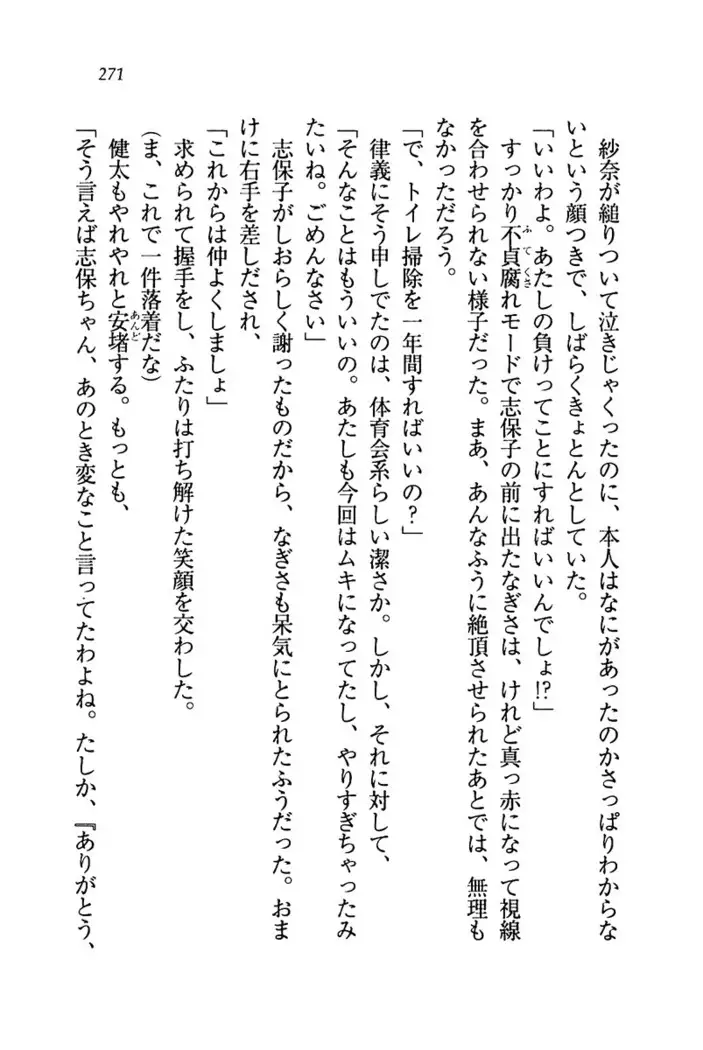 271
紗奈が縋りついて泣きじゃくったのに、本人はなにがあったのかさっぱりわからな
いという顔つきで、しばらくきょとんとしていた。
「いいわよ。あたしの負けってことにすればいいんでしょ!?」
すっかり不貞腐れモードで志保子の前に出たなぎさは、けれど真っ赤になって視線
を合わせられない様子だった。まあ、あんなふうに絶頂させられたあとでは、無理も
なかっただろう。
「で、トイレ掃除を一年間すればいいの？」
律義にそう申しでたのは、体育会系らしい潔さか。しかし、それに対して、
「そんなことはもういいの。あたしも今回はムキになってたし、やりすぎちゃったみ
たいね。ごめんなさい」
志保子がしおらしく謝ったものだから、なぎさも呆気にとられたふうだった。おま
けに右手を差しだされ、
「これからは仲よくしましょ」
求められて握手をし、ふたりは打ち解けた笑顔を交わした。
(ま、これで一件落着だな)
健太もやれやれと安堵する。もっとも、
「そう言えば志保ちゃん、あのとき変なこと言ってたわよね。たしか、『ありがとう、